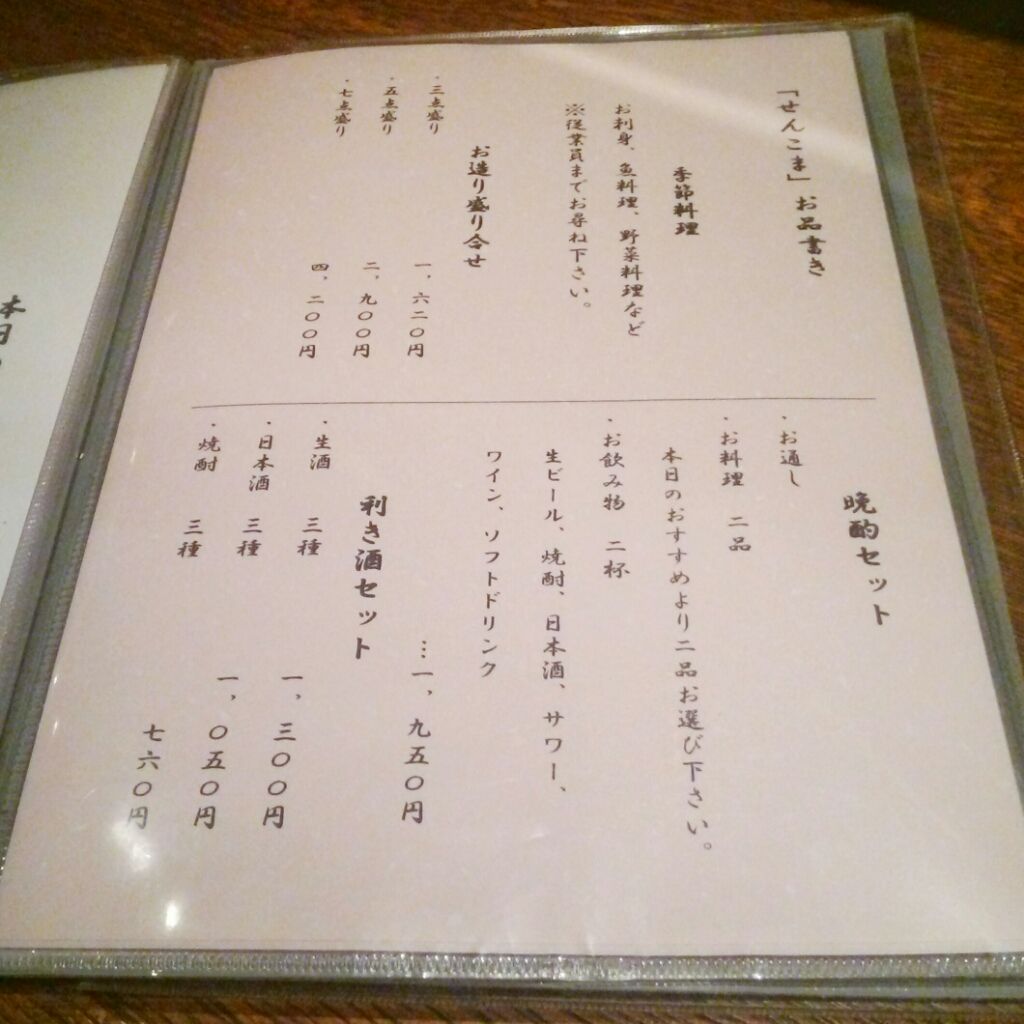 「せんこま」お品書き
季節料理
お刺身、魚料理、野菜料理など
※従業員までお尋ね下さい。
お造り盛り合せ
・三点盛り 一、六二〇円
・五点盛り 二、九〇〇円
・七点盛り 四、二〇〇円
晩酌セット
・お通し
・お料理 二品
本日のおすすめより二品お選び下さい。
・お飲み物 二杯
生ビール、焼酎、日本酒、サワー、
ワイン、ソフトドリンク
…一、九五〇円
利き酒セット
・生酒 三種 一、三〇〇円
・日本酒 三種 一、〇五〇円
・焼酎 三種 七六〇円
本日